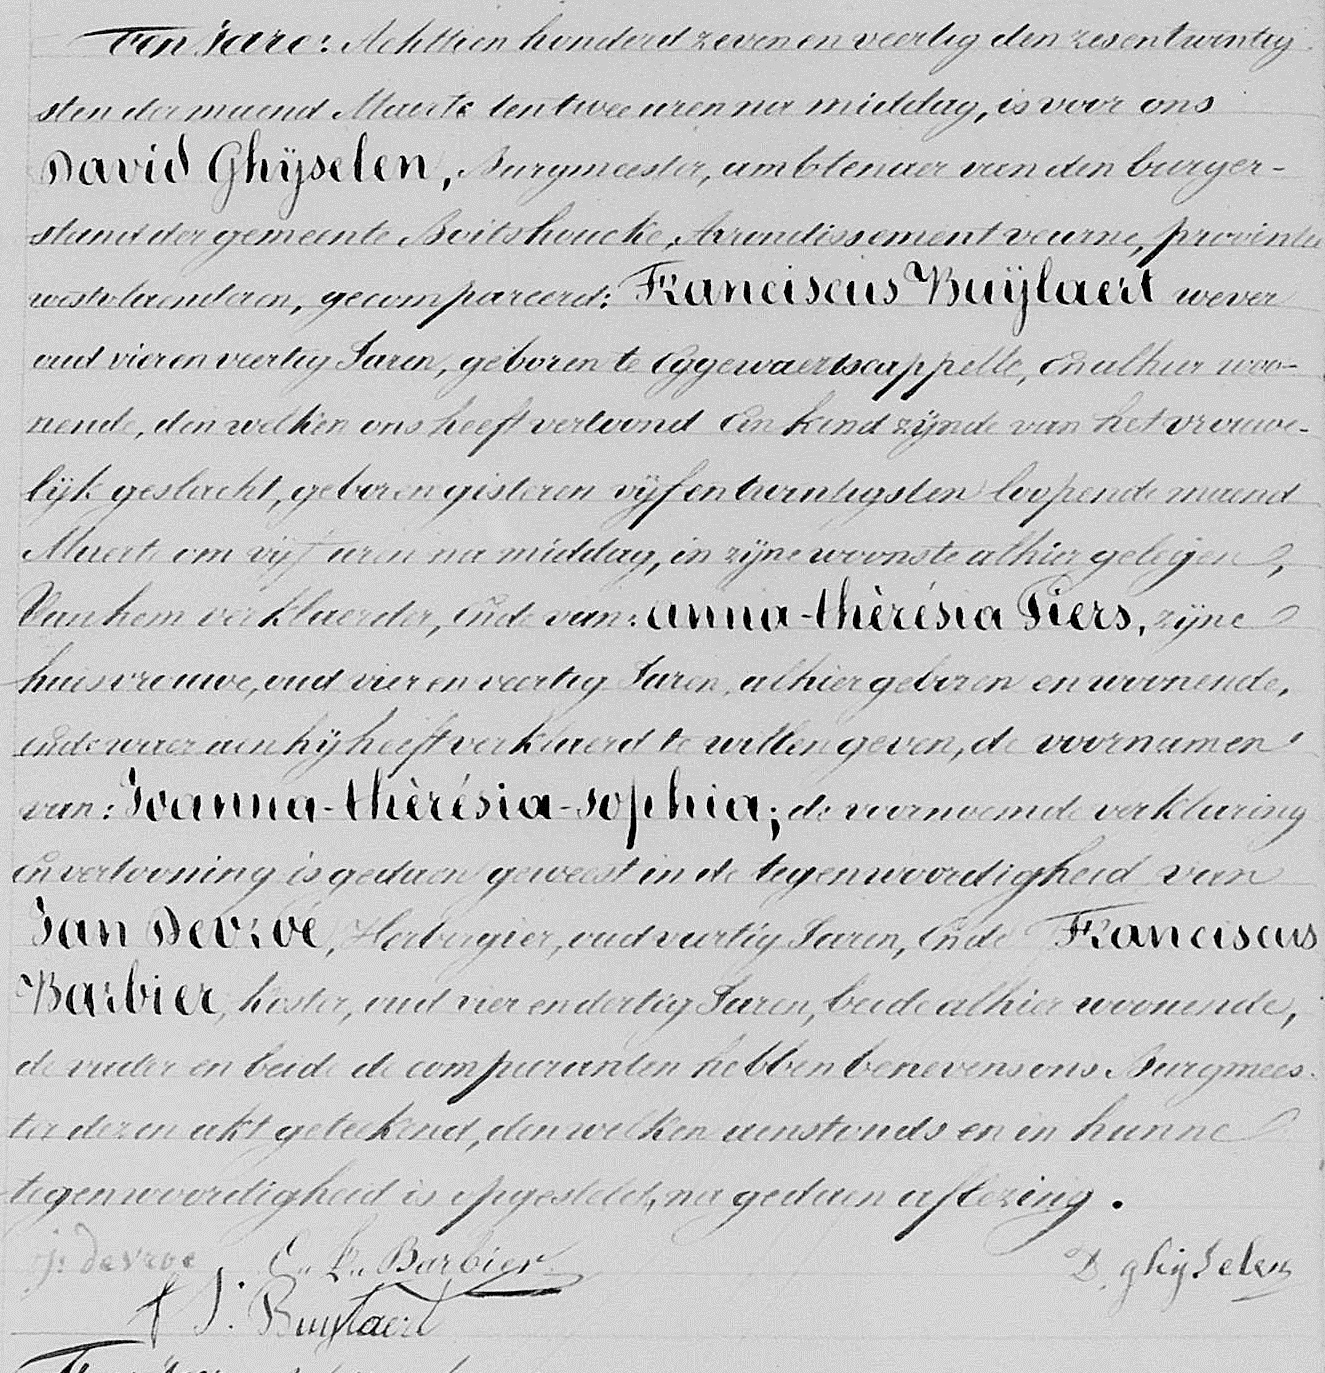 Ten Jare: Achttien honderd zeven en veertig den zesentwintig
sten der maend Maerte ten twee uren na middag, is voor ons
David Ghÿselen, Burgmeester, ambtenaer van den burger-
stand der gemeente Boitshoucke, Arrondissement veurne, provintie
westvlaenderen, gecompareerd: Franciscus Buÿlaert wever
oud vier en veertig Jaren, geboren te Eggewaertscappelle, en alhier woo-
nende, den welken ons heeft vertoond Een kind zÿnde van het vrouwe-
lÿk geslacht, geboren gisteren vÿf en twintigsten loopende maend
Maerte om vÿf uren na middag, in zÿne woonste alhier gelegen,
Van hem verklaerder, Ende van: anna-thèrésia Piers, zÿne
huisvrouwe, oud vier en veertig Jaren, alhier geboren en woonende,
ende waer aen hÿ heeft verklaerd te willen geven, de voornamen
van: Joanna-thèrésia-sophia; de voornoemde verklaring
En vertooning is gedaen geweest in de tegenwoordigheid van
Jan Devroé, Herbergier, oud veertig Jaren, Ende Franciscus
Barbier, koster, oud vier en dertig Jaren, beide alhier woonende,
de vader en beide de comparanten hebben benevens ons Burgmees-
ter dezen akt geteekend, den welken aenstonds en in hunne
tegenwoordigheid is opgesteld, na gedaen aflezing.
j: devroe E. L. Barbier D. ghijselen
f J. Buylaert